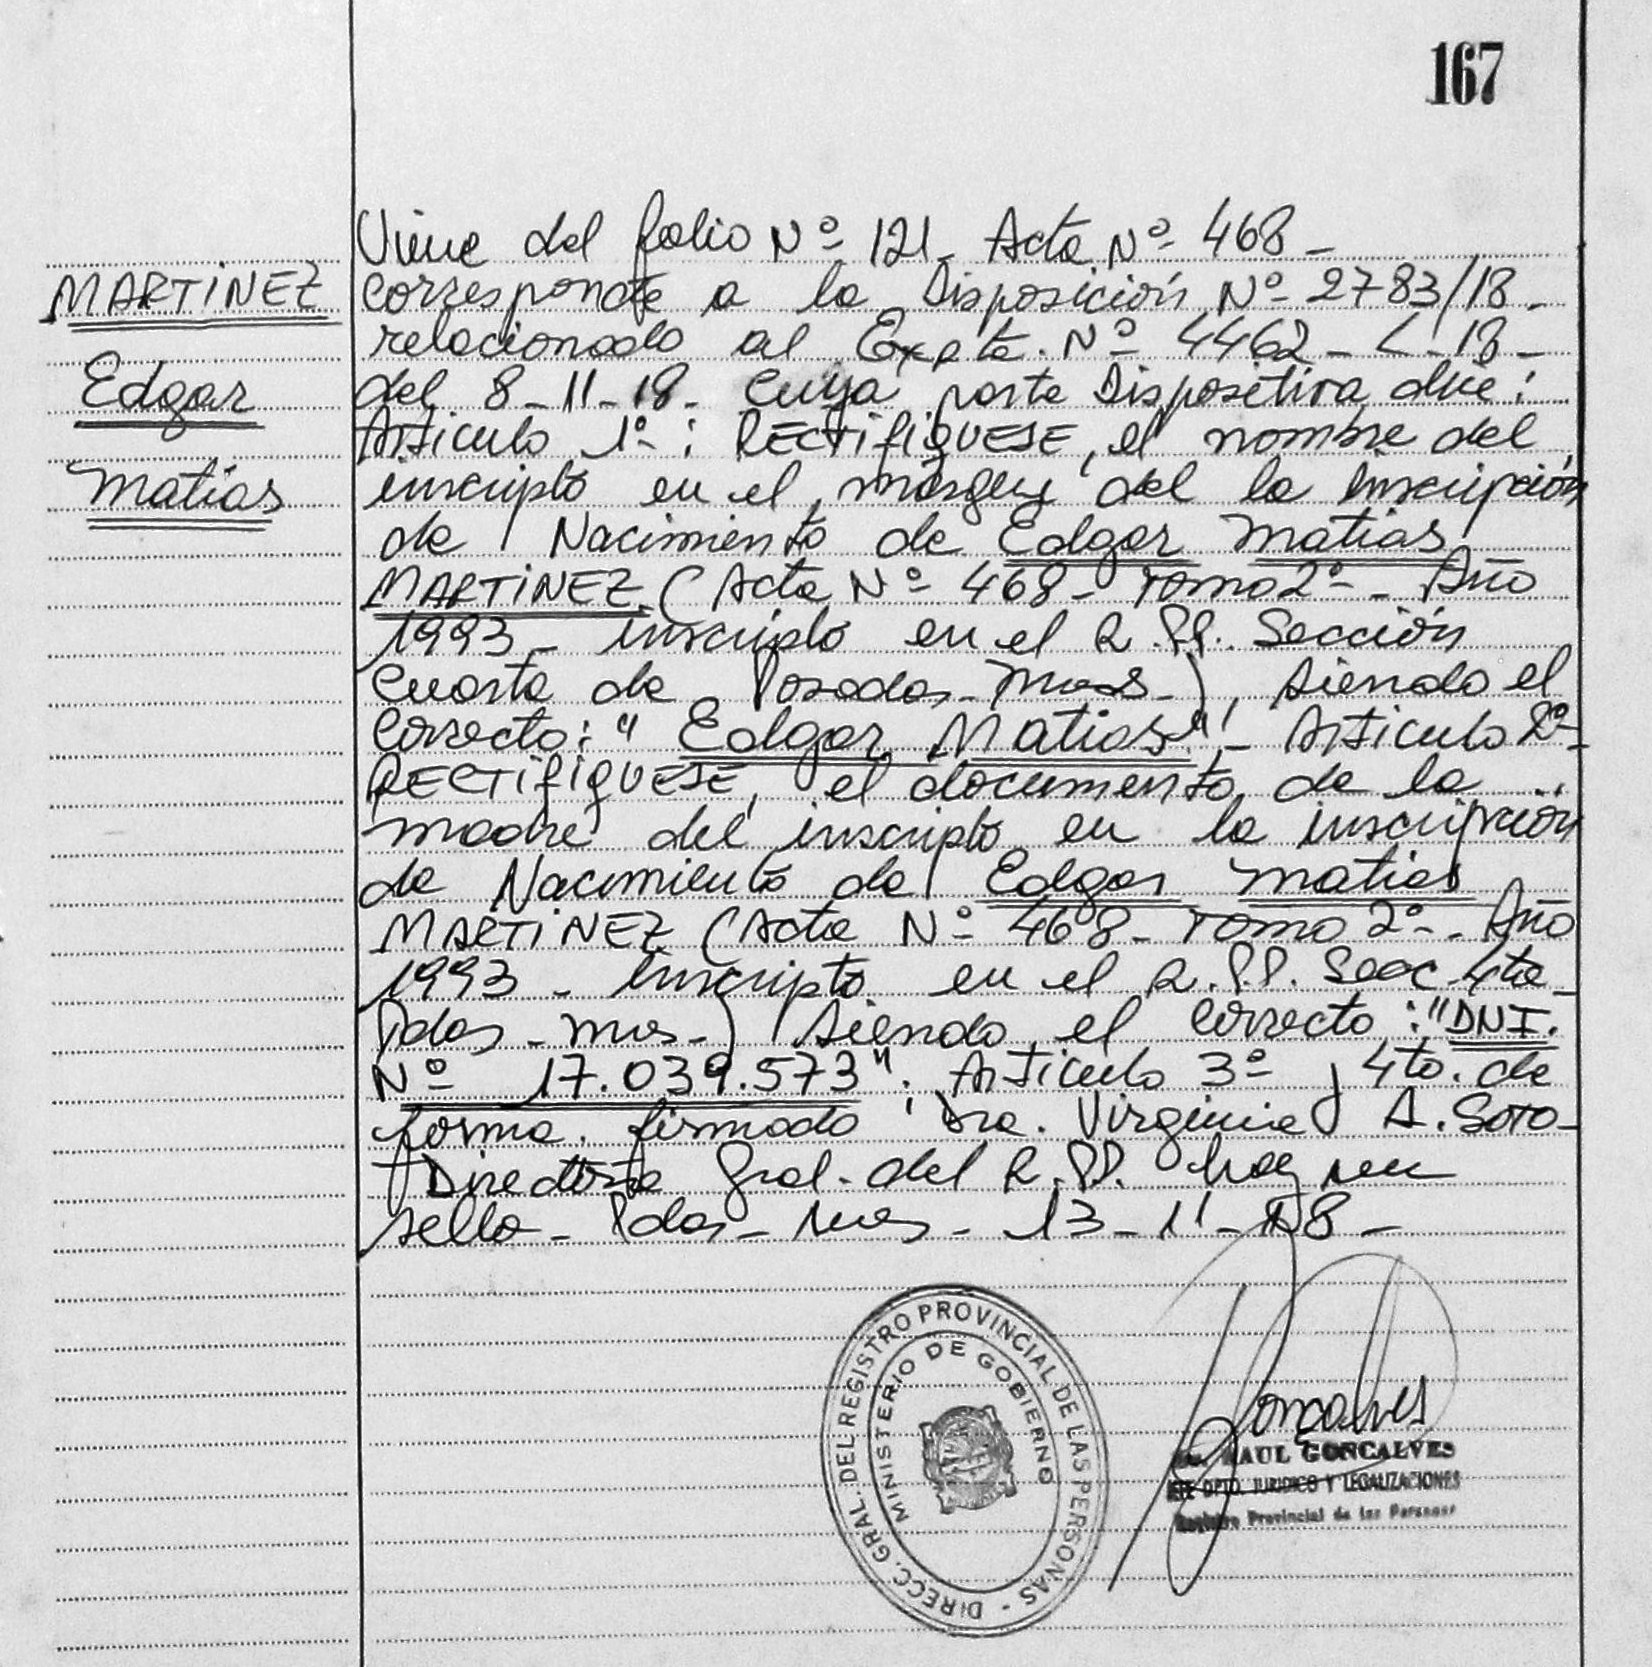 167
Viene del folio Nº 121 - Acta Nº 468 -
MARTINEZ
Corresponde a la Disposición Nº 2783/18 -
relacionado al Expte. Nº 4462 - L - 18 -
Edgar
del 8-11-18 - Cuya parte Dispositiva dice:
Articulo 1º: RECTIFIQUESE, el nombre del
Matias
inscripto en el márgen del la Inscripción
de Nacimiento de Edgar Matias
MARTINEZ (Acta Nº 468 - Tomo 2º - Año
1993 - inscripto en el R.P.P. Sección
Cuarta de Posadas - Mnes -), siendo el
Correcto: "Edgar Matias" - Articulo 2º -
RECTIFIQUESE, el documento de la
madre del inscripto en la inscripción
de Nacimiento de Edgar Matias
MARTINEZ (Acta Nº 468 - Tomo 2º - Año
1993 - Inscripto en el R.P.P. Secc 4ta -
Pdas - Mnes -) siendo el Correcto: "DNI.
Nº 17.039.573". Articulo 3º y 4to. de
forma. firmado Dra. Virginia A. Soto -
Directora Gral. del R.P.P. hay un
sello - Pdas - Mnes - 13-11-18 -
DIRECC. GRAL. DEL REGISTRO PROVINCIAL DE LAS PERSONAS -
MINISTERIO DE GOBIERNO
Gonçalves
RAUL GONCALVES
JEFE DPTO. JURIDICO Y LEGALIZACIONES
Registro Provincial de las Personas